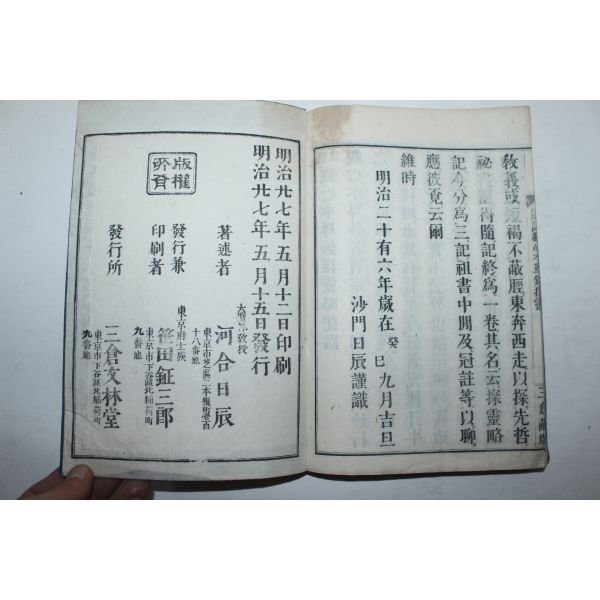 教義或短褐不蔽脛東奔西走以探先哲
祕隨得隨記終爲一卷其名云探靈略
記今分爲三記祖書中間及冠註等以聊
應彼覓云爾
維時
明治二十有六年歲在癸巳九月吉旦
沙門日辰謹識
明治廿七年五月十二日印刷
明治廿七年五月十五日發行
著述者
河合日辰
發行兼
印刷者
東京府士族
笹田鉦三郎
東京市下谷區北稻荷町
九番地
發行所
東京市下谷區北稻荷町
九番地
三倉文林堂
版權所有